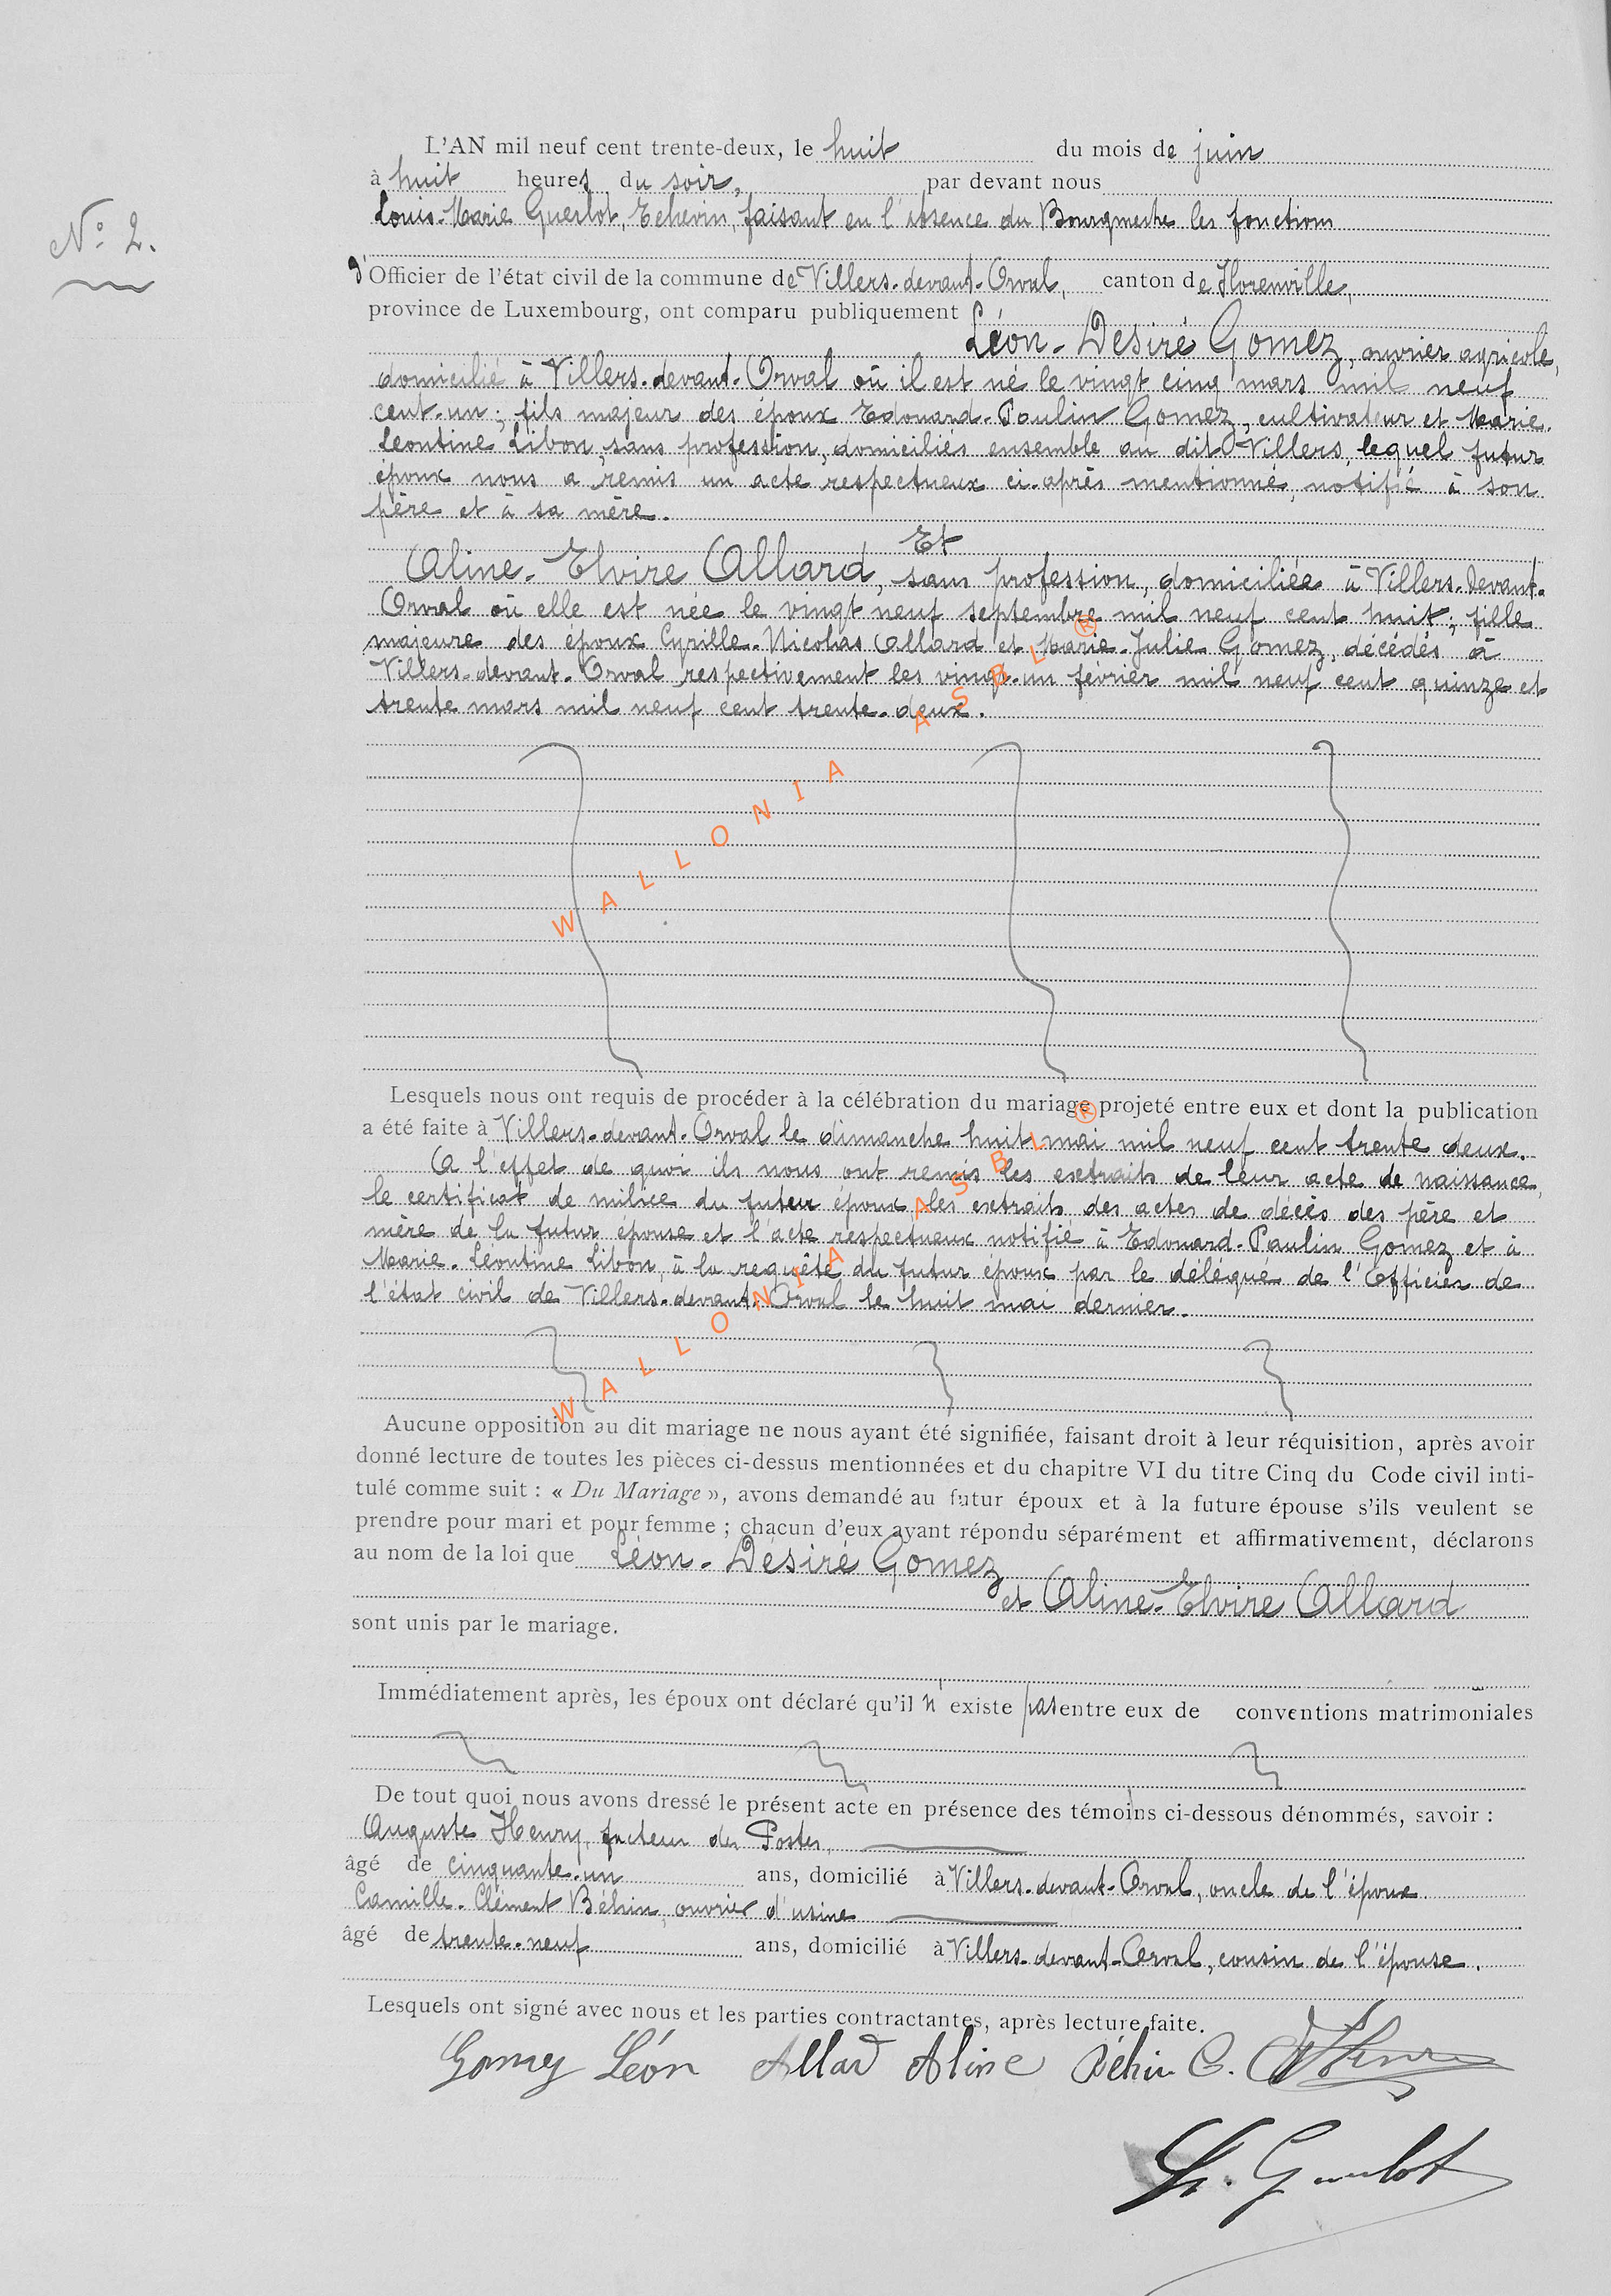 L'AN mil neuf cent trente-deux, le huit du mois de juin
à huit heures du soir, par devant nous
Louis-Marie Guerlot, Echevin, faisant en l'absence du Bourgmestre les fonctions
N° 2.
d'Officier de l'état civil de la commune de Villers-devant-Orval, canton de Florenville,
province de Luxembourg, ont comparu publiquement
Léon-Désiré Gomez, ouvrier agricole,
domicilié à Villers-devant-Orval où il est né le vingt cinq mars mil neuf
cent-un; fils majeur des époux Edouard-Paulin Gomez, cultivateur et Marie-
Léontine Libon, sans profession, domiciliés ensemble au dit Villers, lequel futur
époux nous a remis un acte respectueux ci-après mentionné, notifié à son
père et à sa mère.
Et
Aline-Elvire Allard, sans profession, domiciliée à Villers-devant-
Orval où elle est née le vingt neuf septembre mil neuf cent huit; fille
majeure des époux Cyrille-Nicolas Allard et Marie-Julie Gomez, décédés à
Villers-devant-Orval respectivement les vingt-un février mil neuf cent quinze et
trente mars mil neuf cent trente-deux.
WALLONIA ASBL ®
Lesquels nous ont requis de procéder à la célébration du mariage projeté entre eux et dont la publication
a été faite à Villers-devant-Orval le dimanche huit mai mil neuf cent trente deux.
A l'effet de quoi ils nous ont remis les extraits de leur acte de naissance,
le certificat de milice du futur époux, les extraits des actes de décès des père et
mère de la futur épouse et l'acte respectueux notifié à Edouard-Paulin Gomez et à
Marie-Léontine Libon, à la requête du futur époux par le délégué de l'Officier de
l'état civil de Villers-devant-Orval le huit mai dernier.
WALLONIA ASBL ®
Aucune opposition au dit mariage ne nous ayant été signifiée, faisant droit à leur réquisition, après avoir
donné lecture de toutes les pièces ci-dessus mentionnées et du chapitre VI du titre Cinq du Code civil inti-
tulé comme suit : « Du Mariage », avons demandé au futur époux et à la future épouse s'ils veulent se
prendre pour mari et pour femme ; chacun d'eux ayant répondu séparément et affirmativement, déclarons
au nom de la loi que Léon-Désiré Gomez
et Aline-Elvire Allard
sont unis par le mariage.
Immédiatement après, les époux ont déclaré qu'il n'existe pas entre eux de conventions matrimoniales
De tout quoi nous avons dressé le présent acte en présence des témoins ci-dessous dénommés, savoir :
Auguste Henry, facteur des Postes,
âgé de cinquante-un ans, domicilié à Villers-devant-Orval, oncle de l'époux
Camille-Clément Béhin, ouvrier d'usine
âgé de trente-neuf ans, domicilié à Villers-devant-Orval, cousin de l'épouse.
Lesquels ont signé avec nous et les parties contractantes, après lecture faite.
Gomez Léon Allard Aline Béhin C. A Henry
L. Guerlot